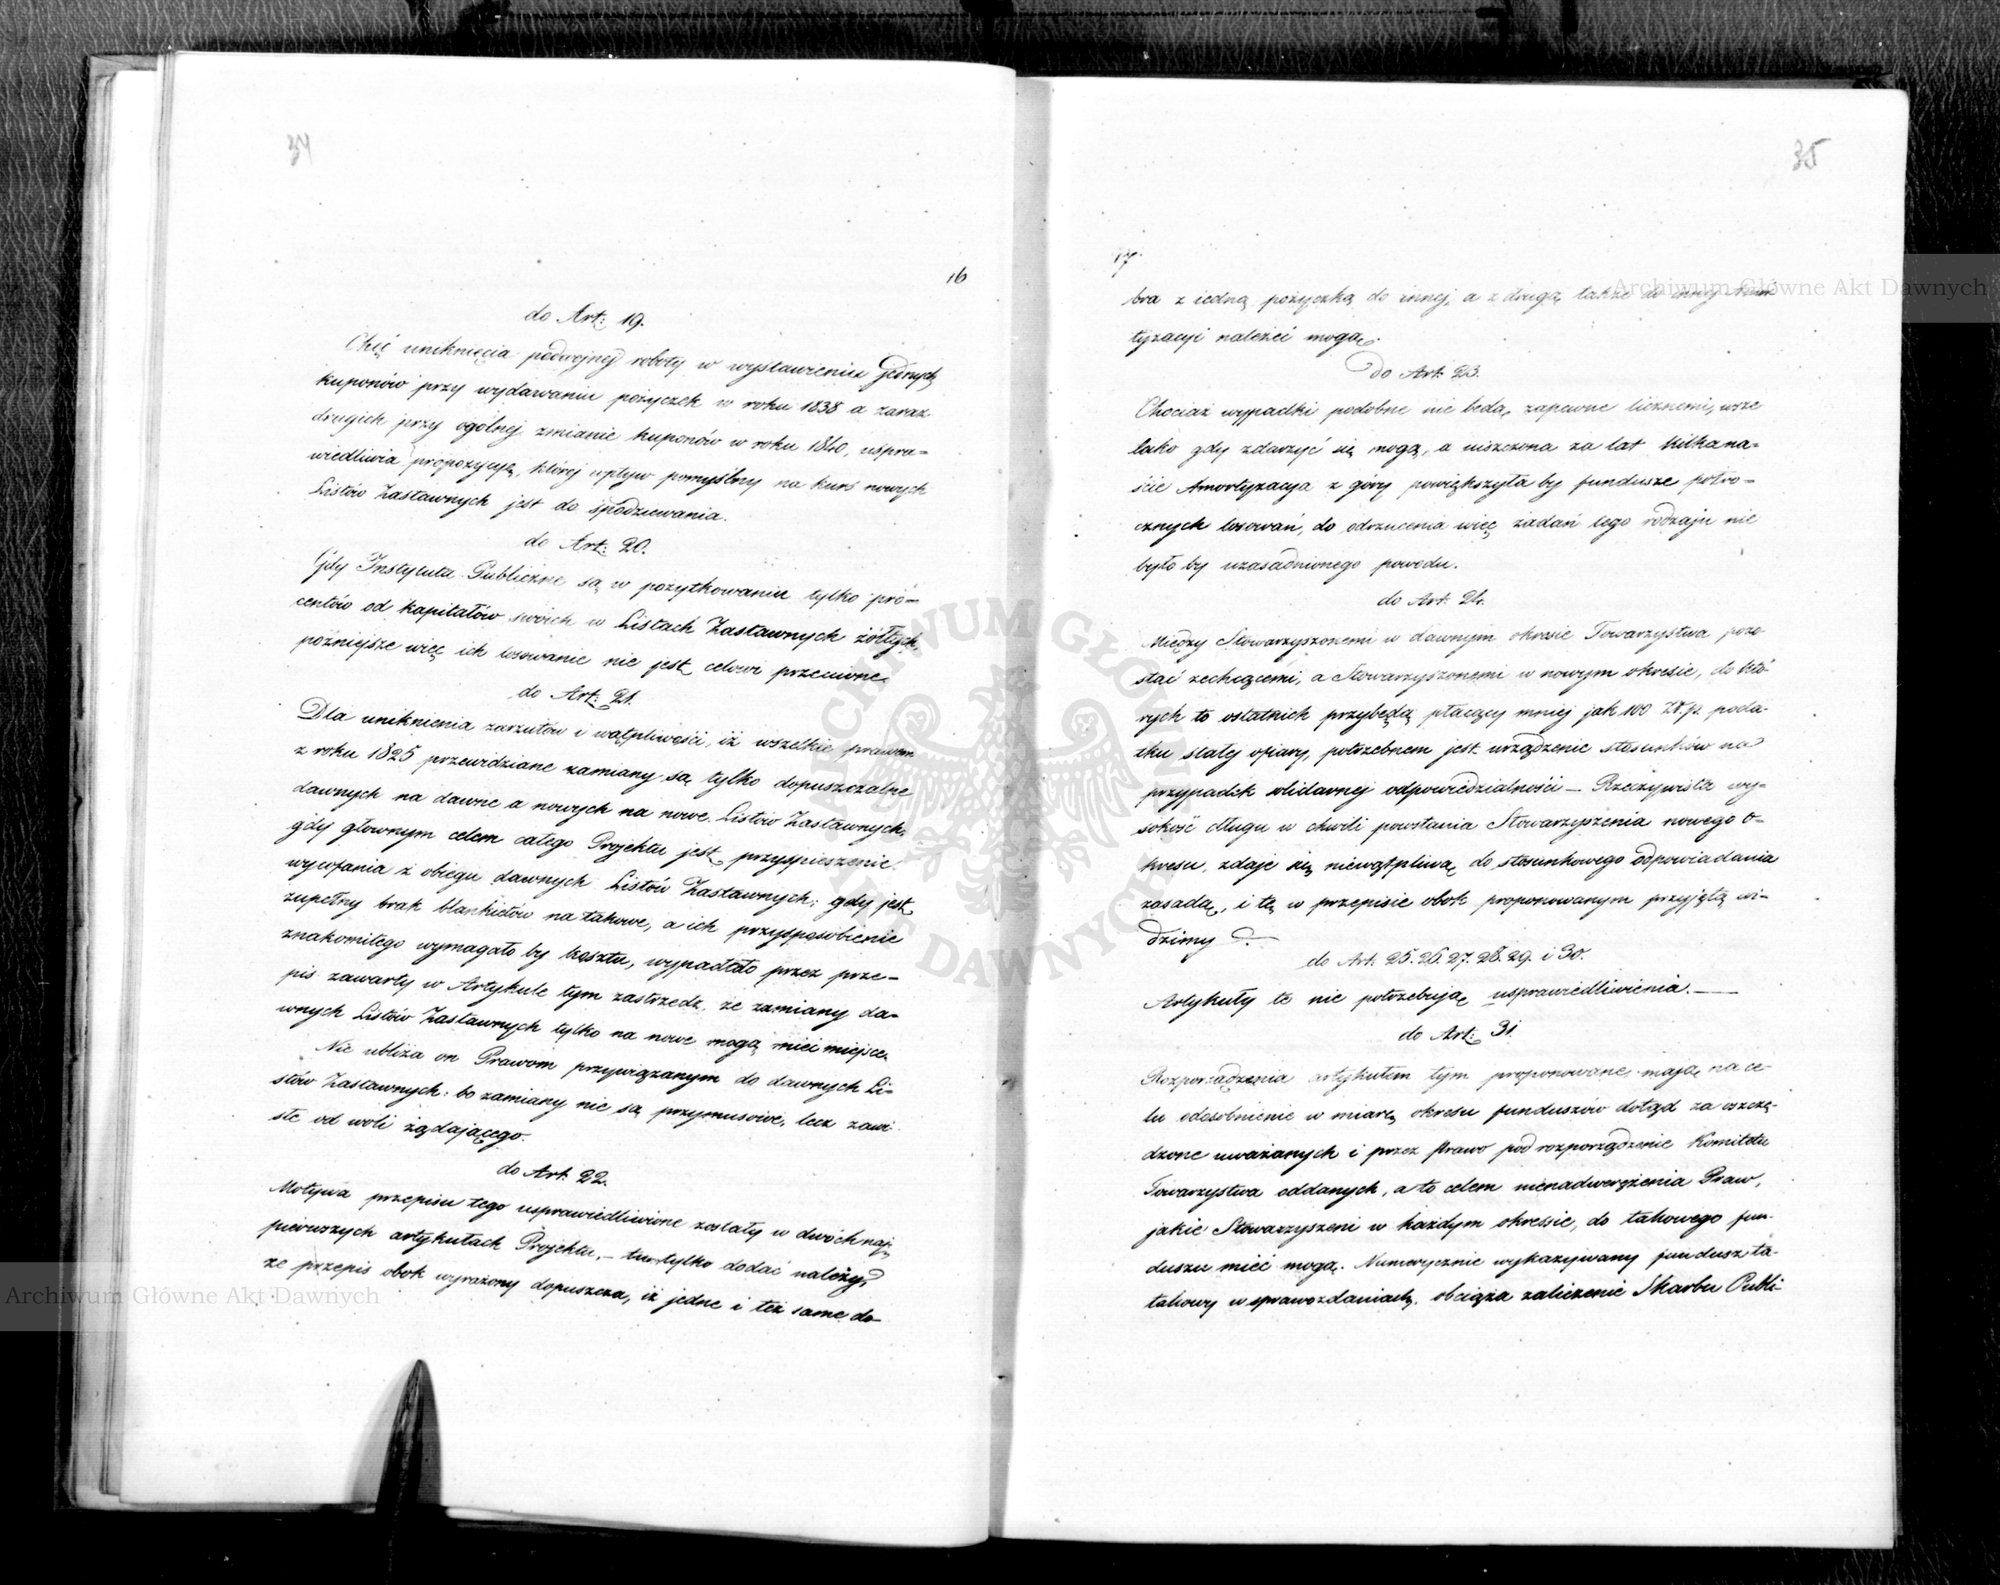 34
16
do Art: 19.
Chęć uniknięcia podwojnej roboty w wystawieniu jednych
kuponów przy wydawaniu pożyczek w roku 1838 a zaraz
drugich przy ogólnej zmianie kuponów w roku 1840, uspra=
wiedliwia propozycyą, której wpływ pomyślny na kurs nowych
Listów Zastawnych jest do spodziewania.
do Art: 20.
Gdy Instytuta Publiczne są w pożytkowaniu tylko pro=
centów od kapitałów swoich w Listach Zastawnych żółtych,
poźniejsze więc ich losowanie nie jest celowi przeciwne.
do Art: 21.
Dla uniknienia zarzutów i wątpliwości, iż wszelkie prawem
z roku 1825 przewidziane zamiany są tylko dopuszczalne
dawnych na dawne a nowych na nowe Listów Zastawnych,
gdy głownym celem całego Projektu jest przyspieszenie
wycofania z obiegu dawnych Listów Zastawnych; gdy jest
zupełny brak blankietów na takowe, a ich przysposobienie
znakomitego wymagało by kosztu, wypadało przez prze=
pis zawarty w Artykule tym zastrzedz, że zamiany da=
wnych Listów Zastawnych tylko na nowe mogą mieć miejsce.
Nie ubliża on Prawom przywiązanym do dawnych Li=
stów Zastawnych: bo zamiany nie są przymusowe, lecz zawi
słe od woli żądającego.
do Art: 22.
Motywa przepisu tego usprawiedliwione zostały w dwóch naj=
pierwszych artykułach Projektu, — tu tylko dodać należy,
że przepis obok wyrażony dopuszcza, iż jedne i też same do=
35
17.
bra z iedną pożyczką do innej, a z drugą także do innej Amor
tyzacyi należeć mogą.
do Art: 23.
Chociaż wypadki podobne nie będą zapewne licznemi, wsze
lako gdy zdarzyć się mogą, a uiszczona za lat kilkana=
ście Amortyzacya z góry powiększyła by fundusze półro=
cznych losowań, do odrzucenia więc żądań tego rodzaju nie
było by uzasadnionego powodu.
do Art: 24.
Między Stowarzyszonemi w dawnym okresie Towarzystwa pozo
stać zechcącemi, a Stowarzyszonemi w nowym okresie, do któ=
rych to ostatnich przybędą płacący mniej jak 100 Zł.p. poda=
tku stałej ofiary, potrzebnem jest urządzenie stosunków na
przypadek solidarnej odpowiedzialności — Rzeczywista wy=
sokość długu w chwili powstania Stowarzyszenia nowego o=
kresu, zdaje się niewątpliwą do stosunkowego odpowiadania
zasadą, i tę w przepisie obok proponowanym przyjętą wi=
dzimy.
do Art: 25. 26. 27. 28. 29. i 30.
Artykuły te nie potrzebują usprawiedliwienia. —
do Art: 31.
Rozporządzenia artykułem tym proponowane, mają na ce=
lu odosobnienie w miarę okresu funduszów dotąd za oszczę=
dzone uważanych i przez Prawo pod rozporządzenie Komitetu
Towarzystwa oddanych, a to celem nienadwerężenia Praw,
jakie Stowarzyszeni w każdym okresie, do takowego fun=
duszu mieć mogą. Numerycznie wykazywany fundusz ta=
takowy w sprawozdaniach, obciąża zaliczenie Skarbu Publi=
Archiwum Główne Akt Dawnych
Archiwum Główne Akt Dawnych
ARCHIWUM GŁÓWNE AKT DAWNYCH